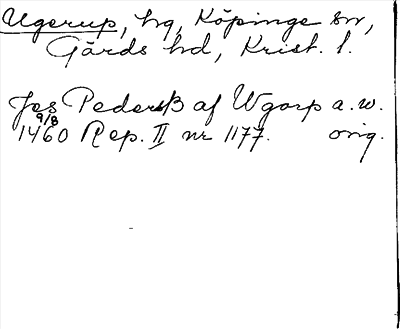 Ugerup, hg, Köpinge sn,
Gärds hd, Krist. l.
Jes Pederß af Wgorp a. w.
9/8
1460 Rep. II nr 1177. orig.